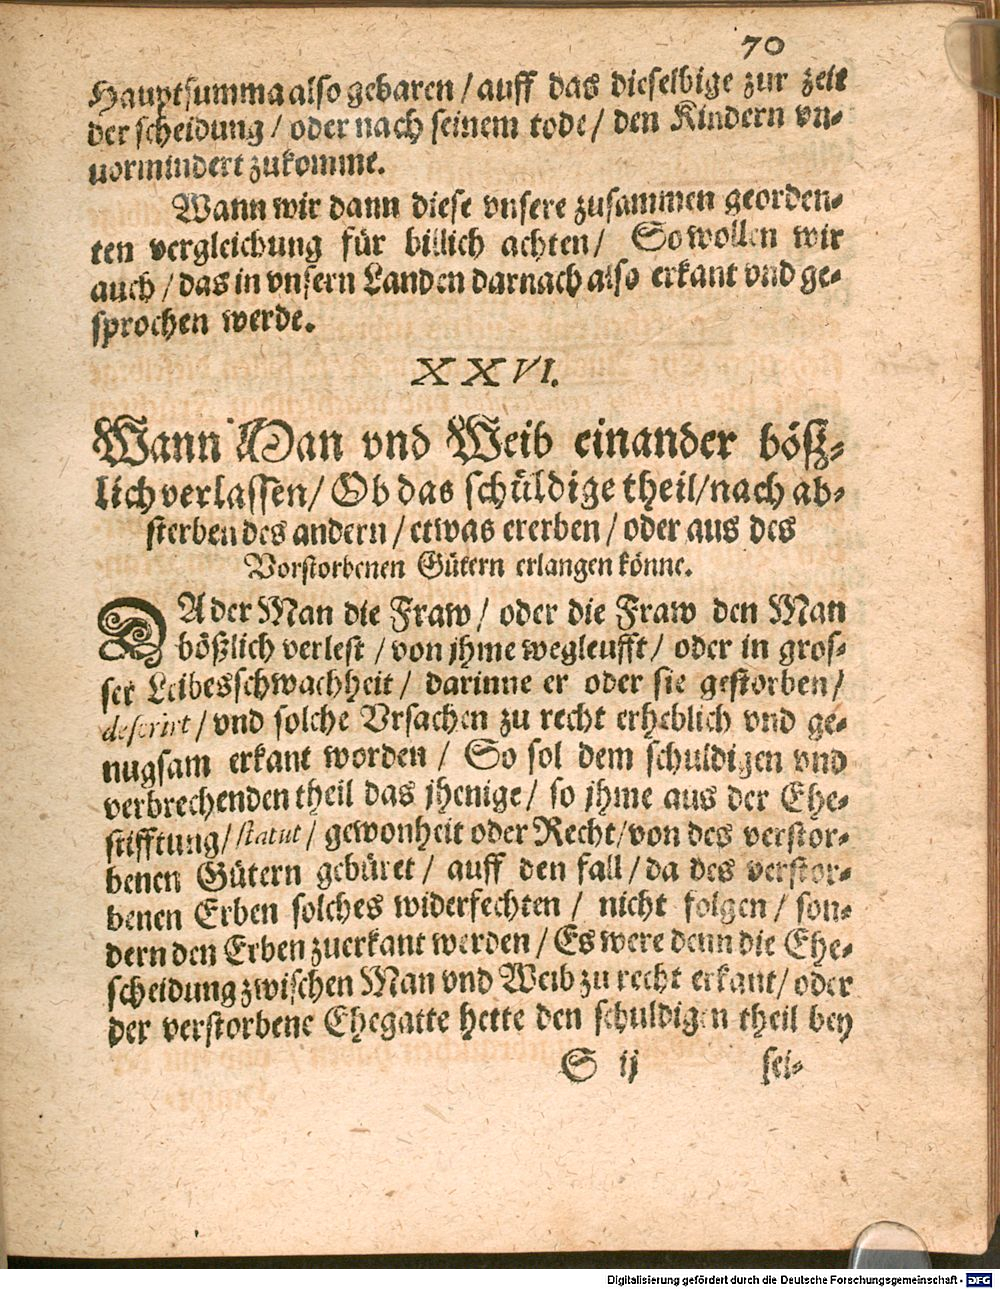 70
Hauptsumma also gebaren / auff das dieselbige zur zeit
der scheidung / oder nach seinem tode / den Kindern vn-
uormindert zukomme.
Wann wir dann diese vnsere zusammen georden-
ten vergleichung für billich achten / So wollen wir
auch / das in vnsern Landen darnach also erkant vnd ge-
sprochen werde.
XXVI.
Wann Man vnd Weib einander böß-
lich verlassen / Ob das schüldige theil / nach ab-
sterben des andern / etwas ererben / oder aus des
Vorstorbenen Gütern erlangen könne.
DA der Man die Fraw / oder die Fraw den Man
bößlich verlest / von jhme wegleufft / oder in gros-
ser Leibesschwachheit / darinne er oder sie gestorben /
deserirt / vnd solche Vrsachen zu recht erheblich vnd ge-
nugsam erkant worden / So sol dem schuldigen vnd
verbrechenden theil das jhenige / so jhme aus der Ehe-
stifftung / statut / gewonheit oder Recht / von des verstor-
benen Gütern gebüret / auff den fall / da des verstor-
benen Erben solches widerfechten / nicht folgen / son-
dern den Erben zuerkant werden / Es were denn die Ehe-
scheidung zwischen Man vnd Weib zu recht erkant / oder
der verstorbene Ehegatte hette den schuldigen theil bey
S ij sei-
Digitalisierung gefördert durch die Deutsche Forschungsgemeinschaft - DFG